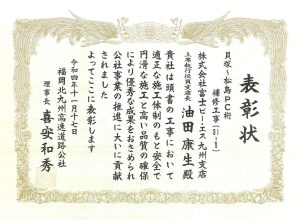 表彰状
貝塚〜松島PC桁
補修工事(21-1)
株式会社富士ピー・エス九州支店
上席執行役員支店長
油田康生殿
貴社は頭書の工事において
適正な施工体制のもと安全で
円滑な施工と高い品質の確保
により優秀な成果をおさめられ
公社事業の推進に大いに貢献
されました
よってここに表彰します
令和四年十一月十七日
福岡北九州高速道路公社
理事長 喜安和秀